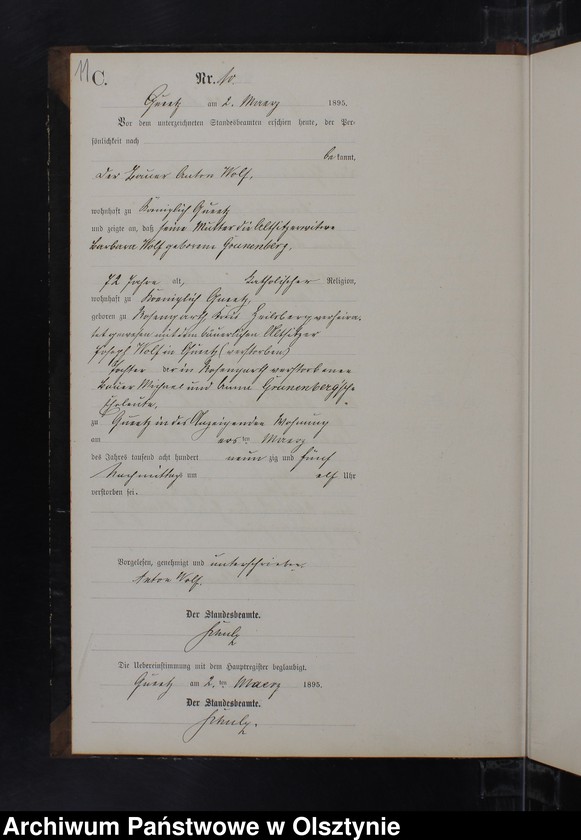 11
C.
Nr. 10.
Queetz am 2. Maerz 1895.
Vor dem unterzeichneten Standesbeamten erschien heute, der Per-
sönlichkeit nach
be kannt,
der Bauer Anton Wolf,
wohnhaft zu Königlich Queetz
und zeigte an, daß seine Mutter die Altsitzerwitwe
Barbara Wolf geborene Grunenberg,
72 Jahre alt, katholischer Religion,
wohnhaft zu Koeniglich Queetz,
geboren zu Rosengarth Kreis Heilsberg verheira-
tet gewesen mit dem bäuerlichen Altsitzer
Joseph Wolf in Queetz (verstorben)
Tochter der in Rosengarth verstorbenen
Bauer Michael und Anna Grunenberg'sche
Eheleute,
zu Queetz in des Anzeigenden Wohnung
am ers ten Maerz
des Jahres tausend acht hundert neun zig und fünf
Nachmittags um elf Uhr
verstorben sei.
Vorgelesen, genehmigt und unterschrieben
Anton Wolf.
Der Standesbeamte.
Schulz
Die Uebereinstimmung mit dem Hauptregister beglaubigt.
Queetz am 2. ten Maerz 1895.
Der Standesbeamte.
Schulz.
Archiwum Państwowe w Olsztynie